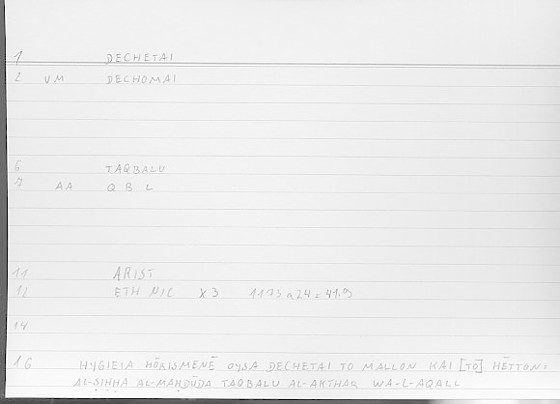 1 DECHETAI
2 VM DECHOMAI
6 TAQBALU
7 AA Q B L
11 ARIST
12 ETH NIC X3 1173a24 = 41.9
14
16 HYGIEIA HŌRISMENĒ OYSA DECHETAI TO MALLON KAI [TO] HĒTTON:
AL-ṢIḤḤA AL-MAḤDŪDA TAQBALU AL-AKTHAR WA-L-AQALL